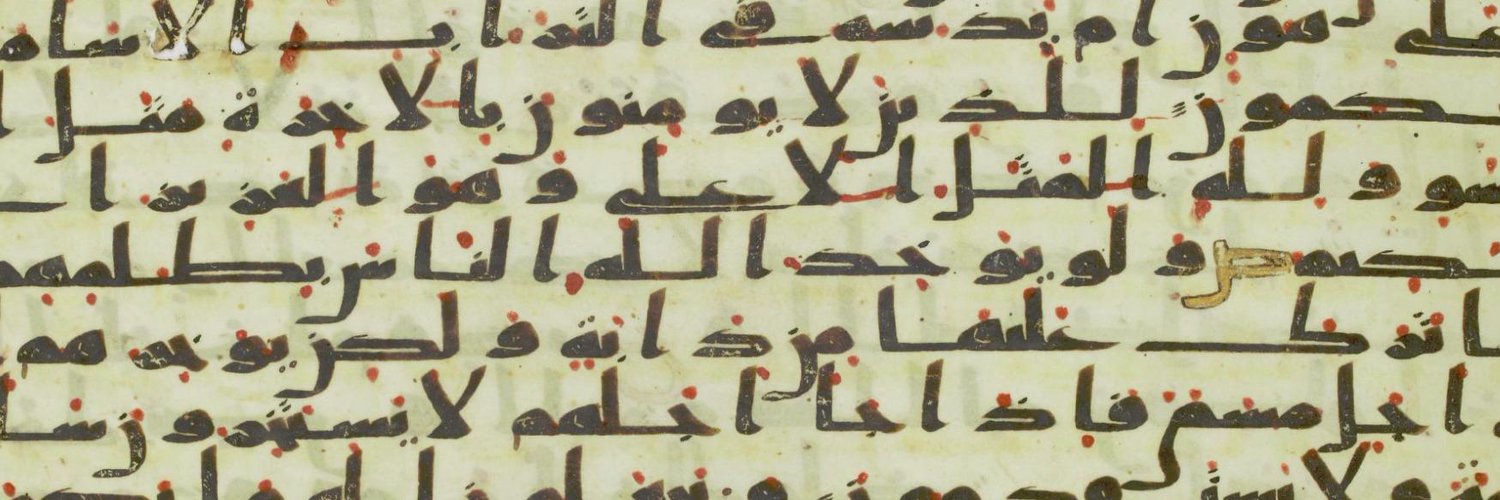 على هون ام يدسه في التراب الا سا ما
يحكمون للذين لا يومنون بالاخرة مثل ا
لسو ولله المثل الاعلى وهو العزيز ا
لحكيم ولو يوخذ الله الناس بظلمهم
ما ترك عليها من دابة ولكن يوخرهم
الى اجل مسمى فاذا جا اجلهم لا يستخرون سا
عة ولا يستقدمون